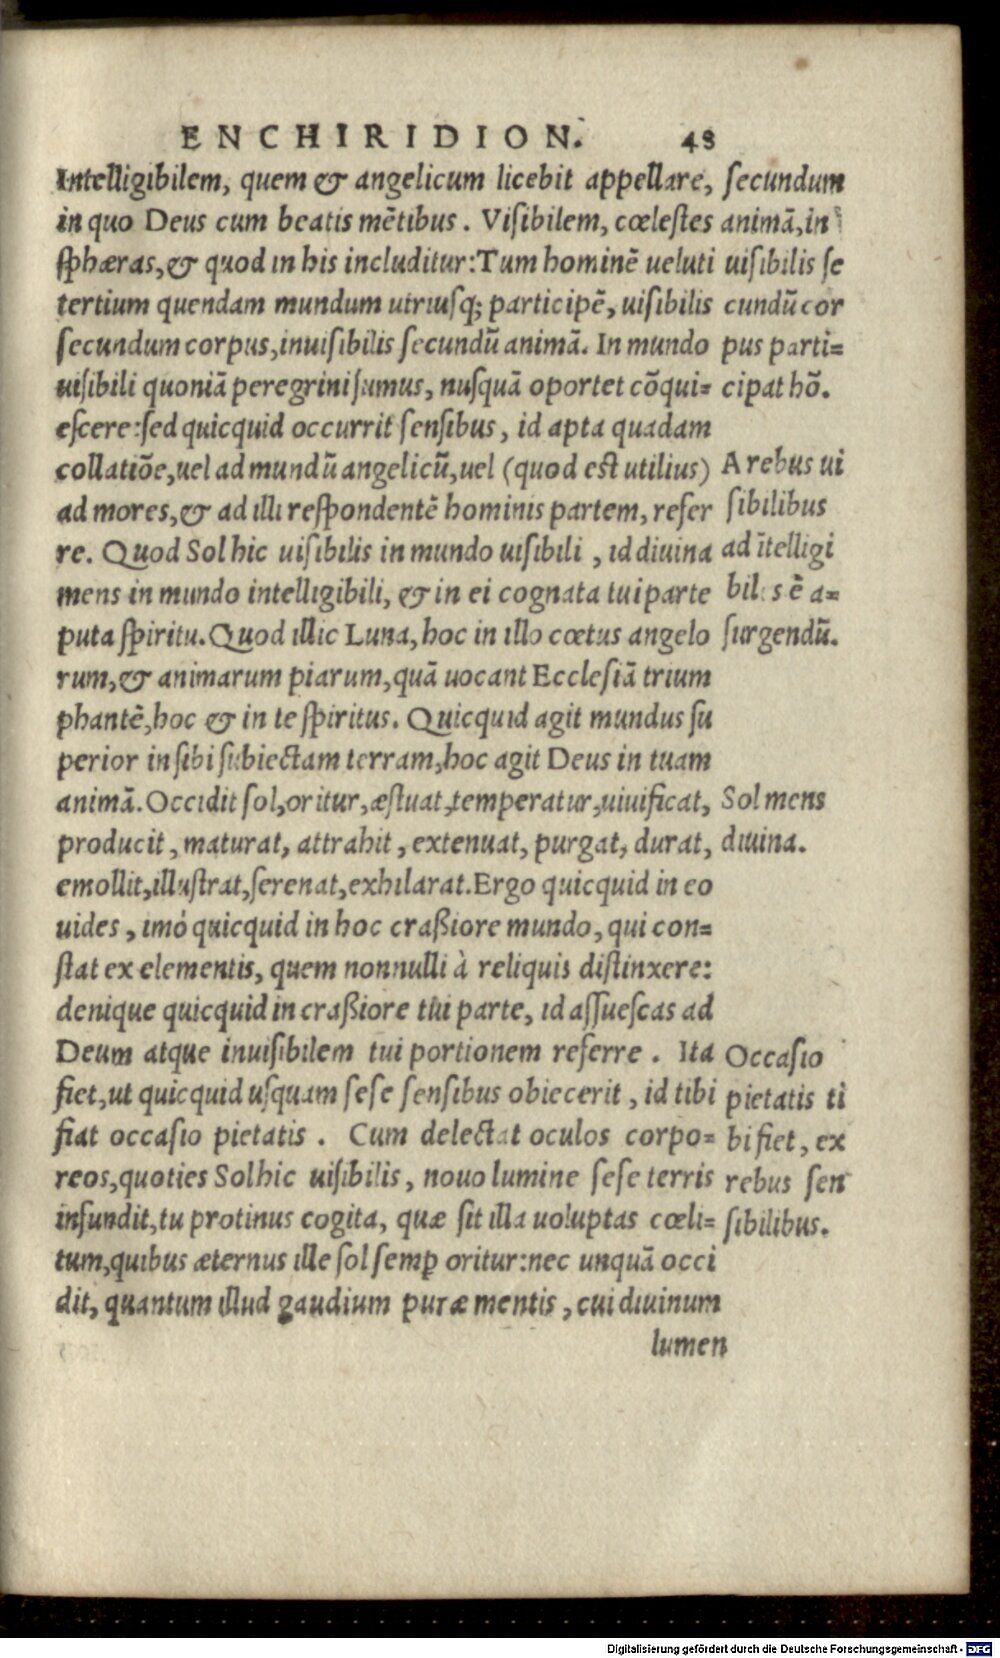 ENCHIRIDION. 48
Intelligibilem, quem & angelicum licebit appellare,
in quo Deus cum beatis mētibus. Visibilem, cœlestes
sphæras, & quod in his includitur: Tum hominē ueluti
tertium quendam mundum utriusq; participē, uisibilis
secundum corpus, inuisibilis secundū animā. In mundo
uisibili quoniā peregrini sumus, nusquā oportet cōqui=
escere: sed quicquid occurrit sensibus, id apta quadam
collatiōe, uel ad mundū angelicū, uel (quod est utilius)
ad mores, & ad illi respondentē hominis partem, refer
re. Quod Sol hic uisibilis in mundo uisibili, id diuina
mens in mundo intelligibili, & in ei cognata tui parte
puta spiritu. Quod illic Luna, hoc in illo cœtus angelo
rum, & animarum piarum, quā uocant Ecclesiā trium
phantē, hoc & in te spiritus. Quicquid agit mundus su
perior in sibi subiectam terram, hoc agit Deus in tuam
animā. Occidit sol, oritur, æstuat, temperatur, uiuificat,
producit, maturat, attrahit, extenuat, purgat, durat,
emollit, illustrat, serenat, exhilarat. Ergo quicquid in eo
uides, imó quicquid in hoc craßiore mundo, qui con=
stat ex elementis, quem nonnulli à reliquis distinxere:
denique quicquid in craßiore tui parte, id assuescas ad
Deum atque inuisibilem tui portionem referre. Ita
fiet, ut quicquid usquam sese sensibus obiecerit, id tibi
fiat occasio pietatis. Cum delectat oculos corpo=
reos, quoties Sol hic uisibilis, nouo lumine sese terris
infundit, tu protinus cogita, quæ sit illa uoluptas cœli=
tum, quibus æternus ille sol semp̱ oritur: nec unquā occi
dit, quantum illud gaudium puræ mentis, cui diuinum
lumen
secundum
animā, in
uisibilis se
cundū cor
pus parti=
cipat hō.
A rebus ui
sibilibus
ad ītelligi
biles ē a=
surgendū.
Sol mens
diuina.
Occasio
pietatis ti
bi fiet, ex
rebus sen
sibilibus.
Digitalisierung gefördert durch die Deutsche Forschungsgemeinschaft - DFG